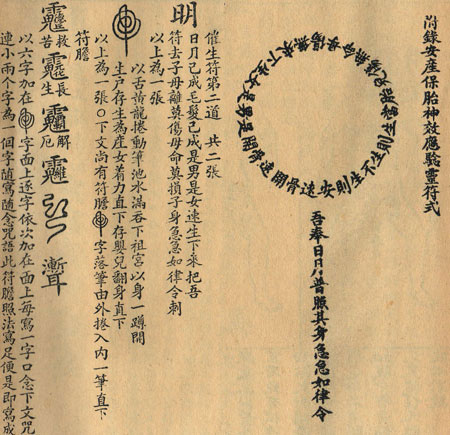 附錄安產保胎神效應驗靈符式
吾奉日月普照其身急急如律令
明
催生符第二道 共二張
日月己成毛髮己成是男是女速生下來把吾
符去子母離莫傷母命莫損子身急急如律令刺
以上為一張
以舌黃龍捲動筆池水滿吞下祖宮以身一蹲開
生戶存生為產女着力直下存嬰兒翻身直下
以上為一張〇下文尚有符膽 字落筆由外捲入內一筆直下
符膽
救苦 長生 解厄
以六字加在 字面上逐字依次加在面上每寫一字口念下文咒
連小兩个字為一個字隨寫隨念咒語此符膽照法寫足便是即寫成